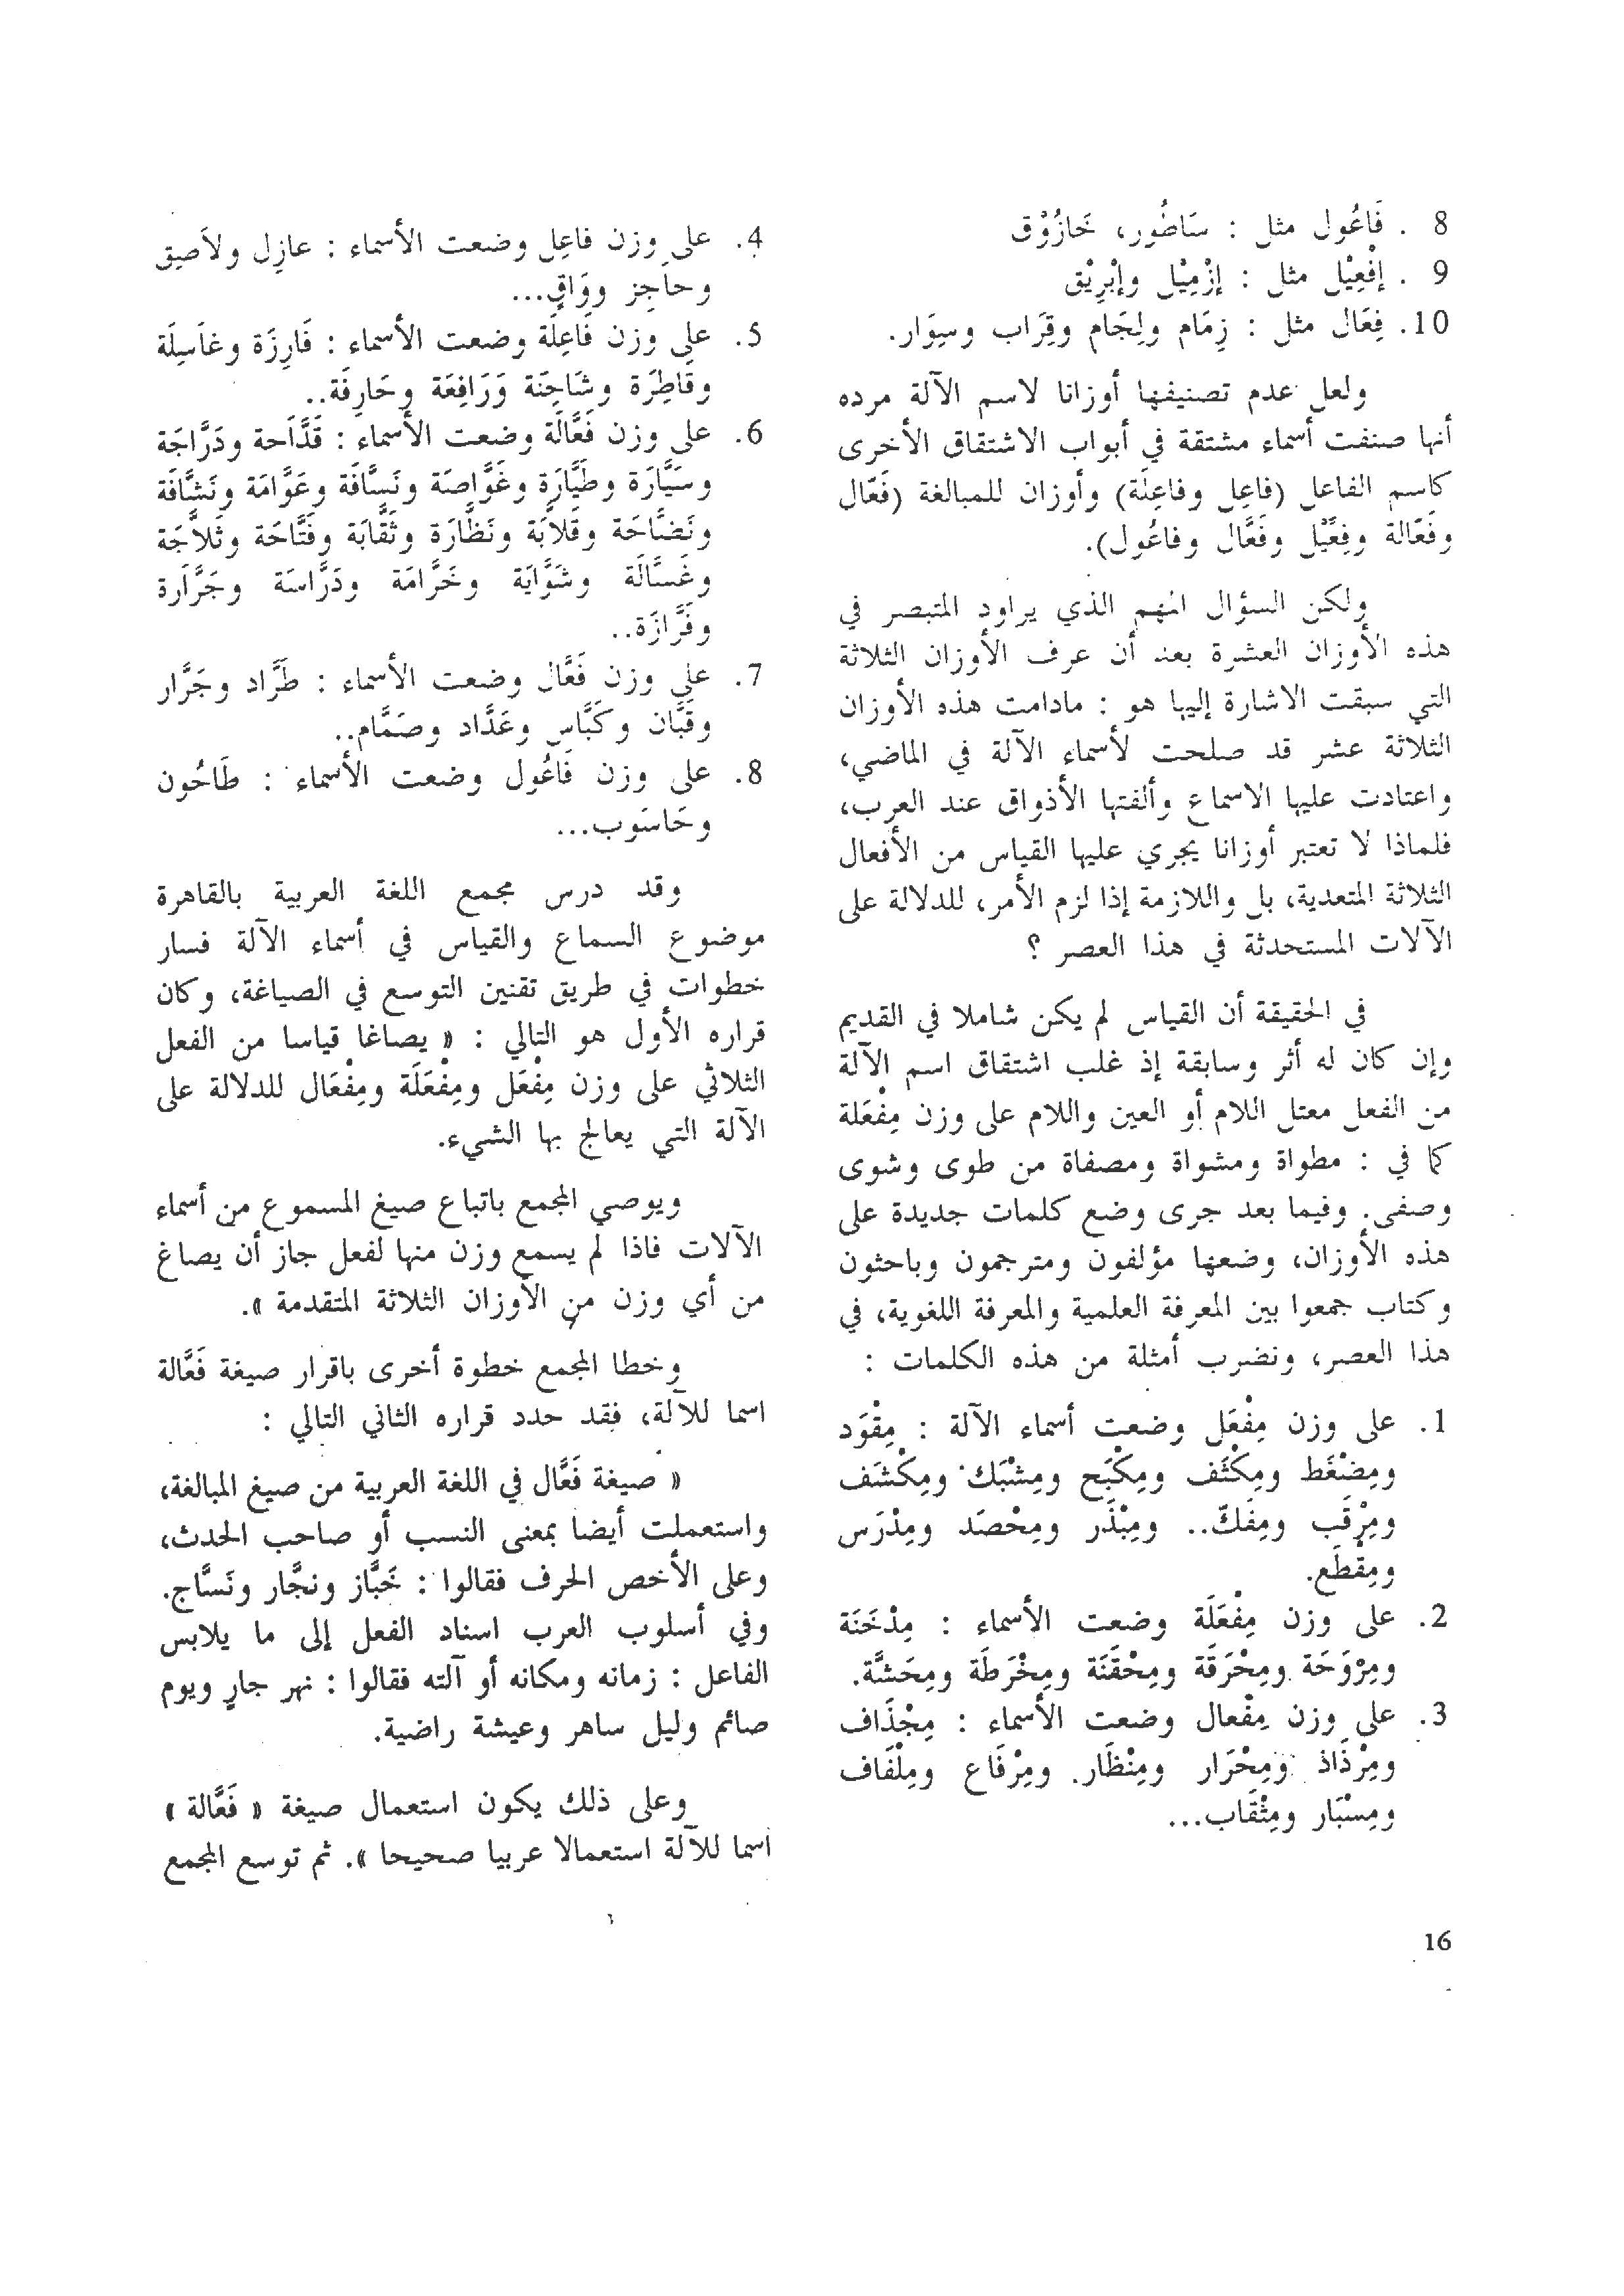 8 . فَاعُول مثل : سَاطُور، خَازُوْق
9 . إفْعِيْل مثل : إزْمِيْل وإبْرِيْق
10. فِعَال مثل : زِمَام ولِجَام وقِرَاب وسِوَار.
ولعل عدم تصنيفها أوزانا لاسم الآلة مرده
أنها صنفت أسماء مشتقة في أبواب الاشتقاق الأخرى
كاسم الفاعل (فاعِل وفاعِلَة) وأوزان للمبالغة (فَعّال
وفَعّالة وفِعَّيْل وفَعَّال وفاعُول).
ولكن السؤال المهم الذي يراود المتبصر في
هذه الأوزان العشرة بعد أن عرف الأوزان الثلاثة
التي سبقت الاشارة إليها هو : مادامت هذه الأوزان
الثلاثة عشر قد صلحت لأسماء الآلة في الماضي،
واعتادت عليها الاسماع وألفتها الأذواق عند العرب،
فلماذا لا تعتبر أوزانا يجري عليها القياس من الأفعال
الثلاثة المتعدية، بل واللازمة إذا لزم الأمر، للدلالة على
الآلات المستحدثة في هذا العصر ؟
في الحقيقة أن القياس لم يكن شاملا في القديم
وإن كان له أثر وسابقة إذ غلب اشتقاق اسم الآلة
من الفعل معتل اللام أو العين واللام على وزن مِفْعَلة
كما في : مطواة ومشواة ومصفاة من طوى وشوى
وصفى. وفيما بعد جرى وضع كلمات جديدة على
هذه الأوزان، وضعها مؤلفون ومترجمون وباحثون
وكتاب جمعوا بين المعرفة العلمية والمعرفة اللغوية، في
هذا العصر، ونضرب أمثلة من هذه الكلمات :
1. على وزن مِفْعَل وضعت أسماء الآلة : مِقْوَد
ومِضْغَط ومِكْثَف ومِكْبَح ومِشْبَك ومِكْشَف
ومِرْقَب ومِفَكّ.. ومِبْذَر ومِحْصَد ومِدْرَس
ومِقْطَع.
2. على وزن مِفْعَلَة وضعت الأسماء : مِدْخَنَة
ومِرْوَحَة ومِحْرَقَة ومِحْقَنَة ومِخْرَطَة ومِحَشَّة.
3. على وزن مِفْعال وضعت الأسماء : مِجْذَاف
ومِرْذَاذ ومِحْرَار ومِنْظَار. ومِرْفَاع ومِلْفَاف
ومِسْبَار ومِثْقَاب...
4. على وزن فاعِل وضعت الأسماء : عازِل ولاَصِق
وحاَجِز ووَاقٍ...
5. على وزن فَاعِلَة وضعت الأسماء : فَارِزَة وغاَسِلَة
وقَاطِرَة وشَاحِنَة وَرَافِعَة وجَارِفَة..
6. على وزن فَعَّالَة وضعت الأسماء : قَدَّاحة ودَرَّاجَة
وسَيَّارَة وطَيَّارَة وغَوَّاصَة ونَسَّافَة وعَوَّامَة ونَشَّافَة
ونَضَّاحَة وقَلاَّبَة ونَظَّارَة وثَقَّابَة وفَتَّاحَة وثَلاَّجَة
وغَسَّالَة وشَوَّايَة وخَرَّامَة ودَرَّاسَة وجَرَّارة
وفَرَّازَة..
7. على وزن فَعَّال وضعت الأسماء : طَرَّاد وجَرَّار
وقَبَّان وكَبَّاس وعَدَّاد وصَمَّام..
8. على وزن فَاعُول وضعت الأسماء : طَاحُون
وحَاسَوب...
وقد درس مجمع اللغة العربية بالقاهرة
موضوع السماع والقياس في أسماء الآلة فسار
خطوات في طريق تقنين التوسع في الصياغة، وكان
قراره الأول هو التالي : « يصاغا قياسا من الفعل
الثلاثي على وزن مِفْعَل ومِفْعَلَة ومِفْعَال للدلالة على
الآلة التي يعالج بها الشيء.
ويوصي المجمع باتباع صيغ المسموع من أسماء
الآلات فاذا لم يسمع وزن منها لفعل جاز أن يصاغ
من أي وزن من الأوزان الثلاثة المتقدمة ».
وخطا المجمع خطوة أخرى باقرار صيغة فَعَّالة
اسما للآلة، فقد حدد قراره الثاني التالي :
« صيغة فَعَّال في اللغة العربية من صيغ المبالغة،
واستعملت أيضا بمعنى النسب أو صاحب الحدث،
وعلى الأخص الحرف فقالوا : خَبَّاز ونجَّار ونَسَّاج.
وفي أسلوب العرب اسناد الفعل إلى ما يلابس
الفاعل : زمانه ومكانه أو آلته فقالوا : نهر جارٍ ويوم
صائم وليل ساهر وعيشة راضية.
وعلى ذلك يكون استعمال صيغة « فَعَّالة »
اسما للآلة استعمالا عربيا صحيحا ». ثم توسع المجمع
16